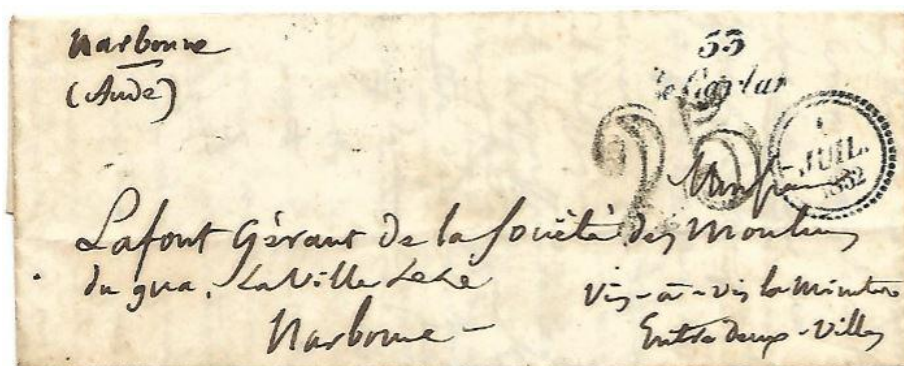 Narbonne
(Aude)
53
le Caylar
25
JUIL.
1852
Monsieur
Lafont Gérant de la Société des Moulins
du gua. La Ville
Narbonne -
Vis-à-vis la
Entre deux-Villes